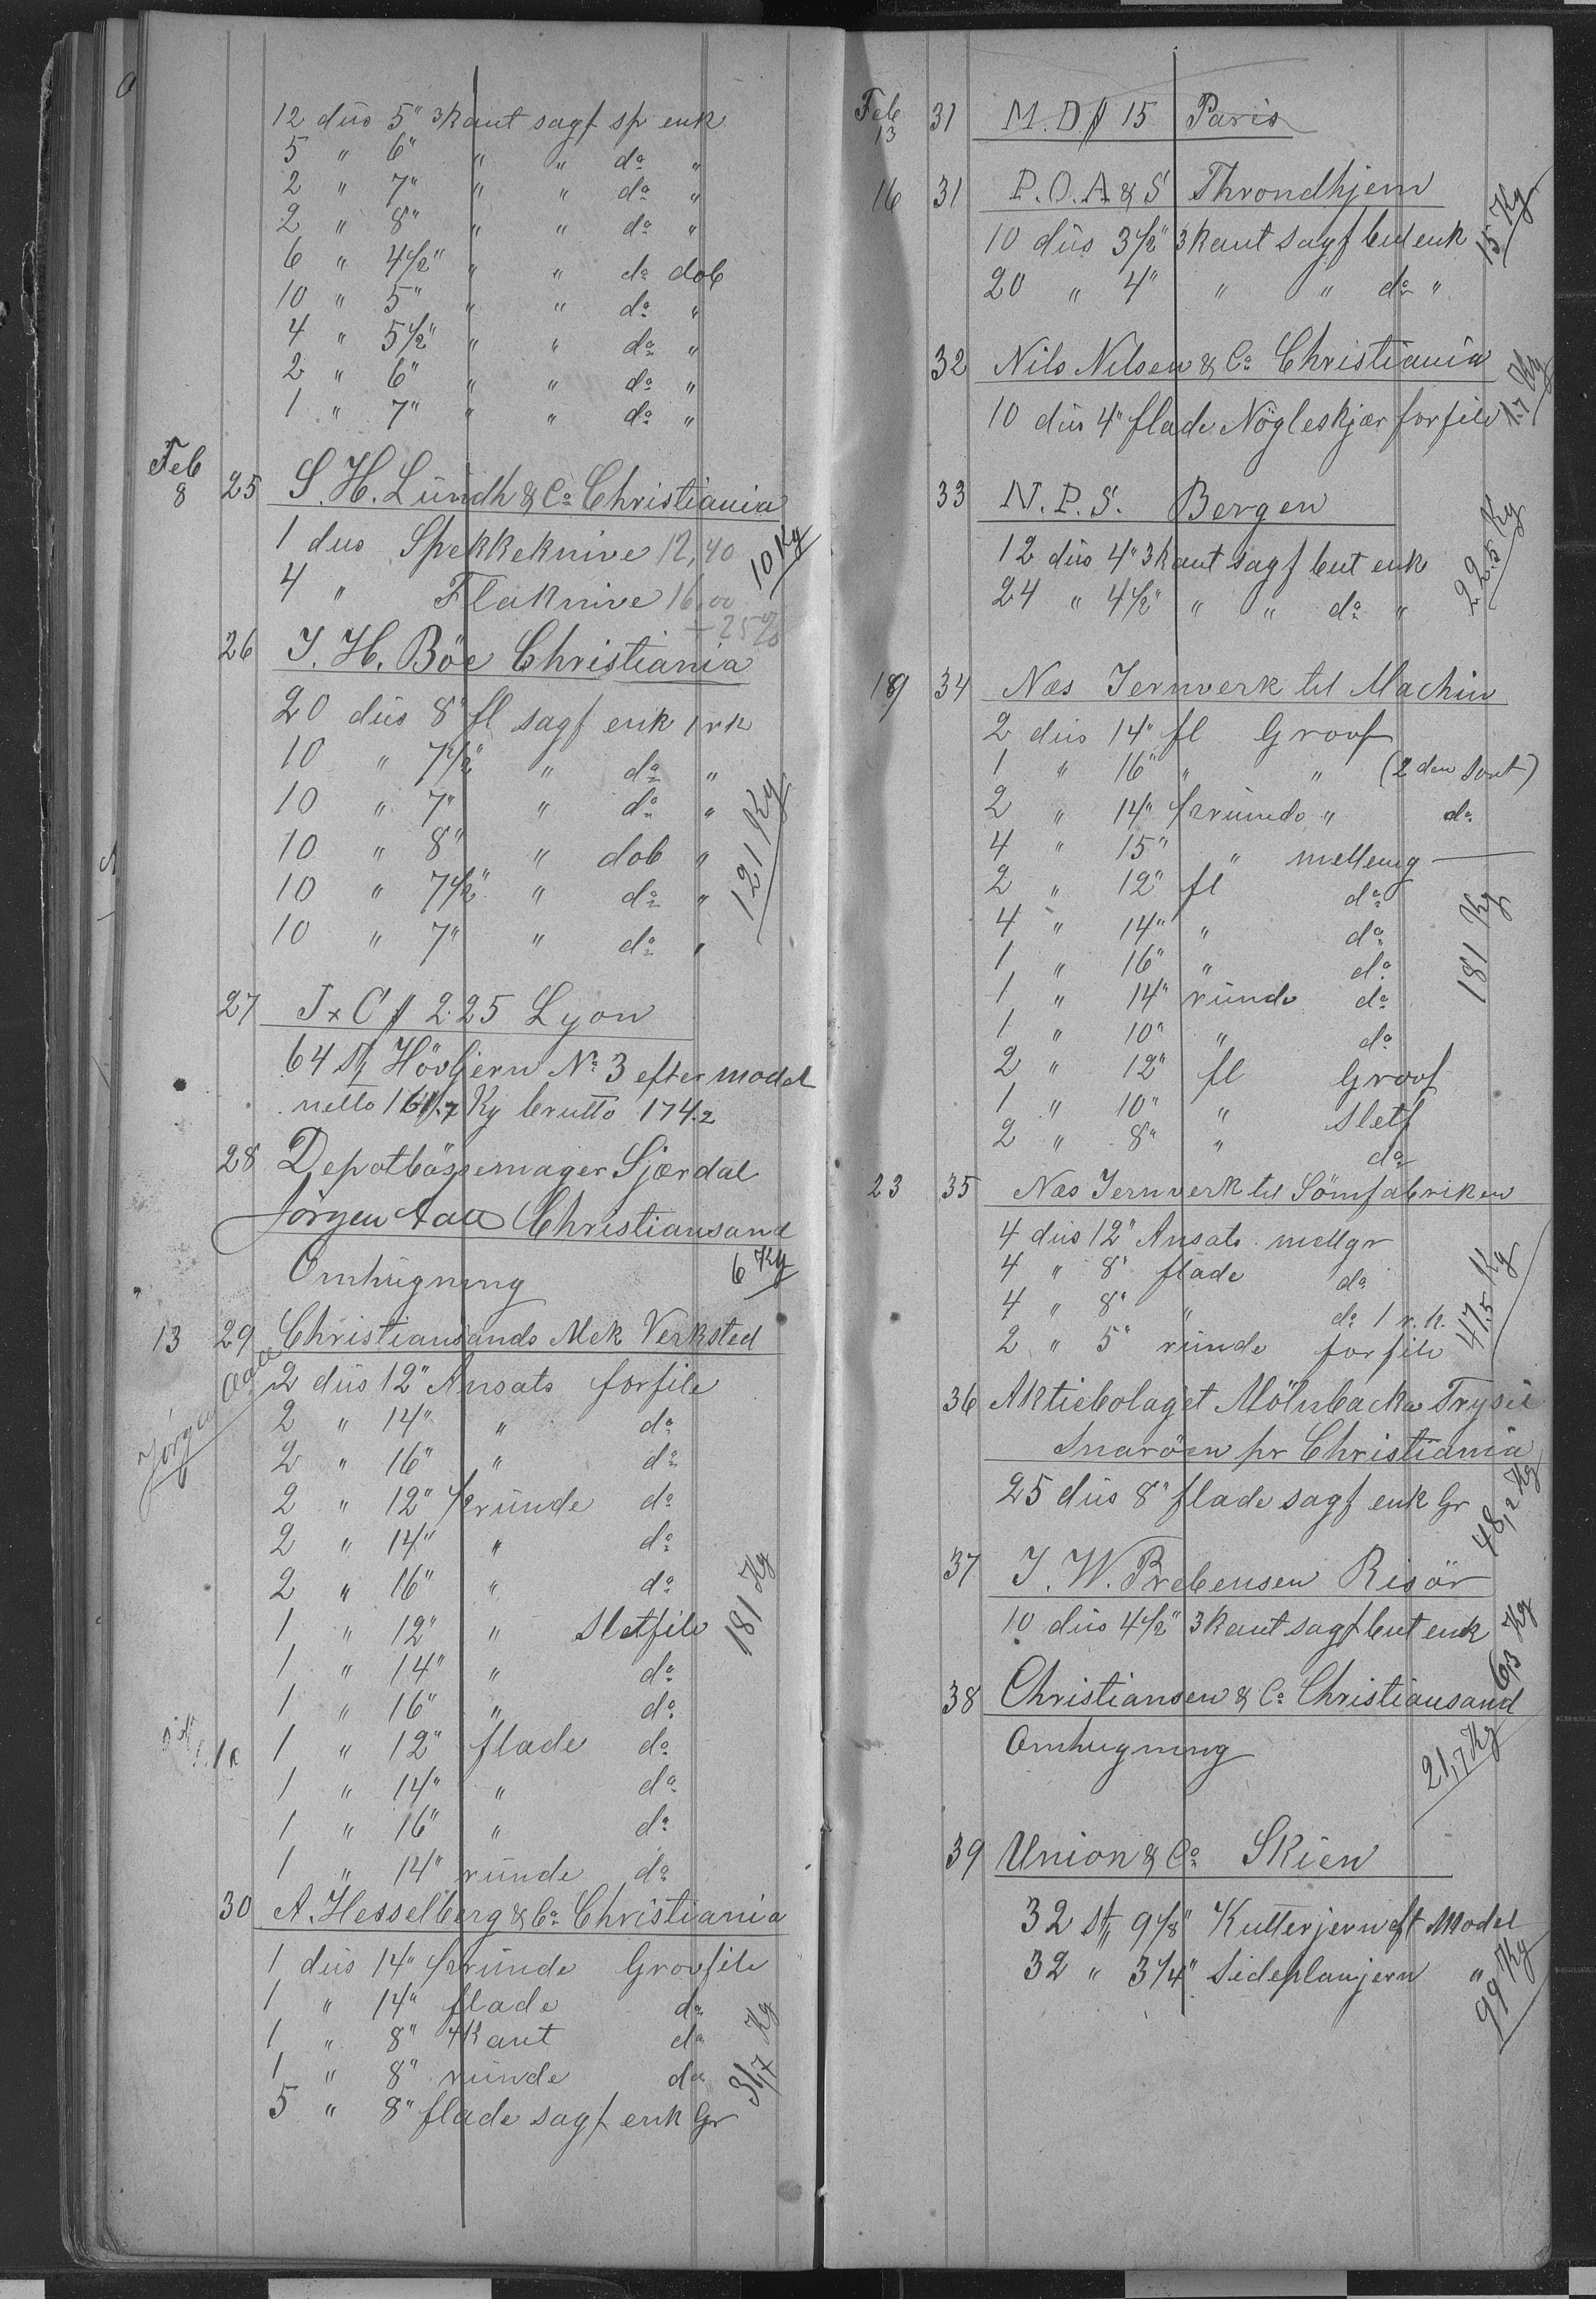 12 dus 5" 3kant sagf sp enk
5 " 6" " " do "
2 " 7" " " do "
2 " 8" " " do "
6 " 4 1/2" " " do dob
10 " 5" " " do "
4 " 5 1/2" " " do "
2 " 6" " " do "
1 " 7" " " do "
Feb 8 25 S. H. Lundh & Co Christiania
1 dus Spekkeknive 12,40
4 " Flaknive 16,00 10 Kg
+ 25%
26 J. H. Böe Christiania
20 dus 8" fl sagf enk 1 rk
10 " 7 1/2" " do "
10 " 7" " do "
10 " 8" " dob "
10 " 7 1/2" " do "
10 " 7" " do "
121 Kg
27 J x C # 2.25 Lyon
64 st Hövljern No 3 efter model
netto 161.7 Kg brutto 174.2
28 Depotbössemager Sjærdal
Jörgen Aall Christiansand
Omhugning 6 Kg
13 29 Christiansands Mek Verksted
Jörgen Aall
2 dus 12" Ansats forfile
2 " 14" " do
2 " 16" " do
2 " 12" 1/2runde do
2 " 14" " do
2 " 16" " do
1 " 12" " Sletfile
1 " 14" " do
1 " 16" " do
1 " 12" flade do
1 " 14" " do
1 " 16" " do
1 " 14" runde do
181 Kg
30 A. Hesselberg & Co Christiania
1 dus 14" 1/2runde Grovfile
1 " 14" flade do
1 " 8" 4kant do
1 " 8" runde do
5 " 8" flade sagf enk Gr
31,7 Kg
Feb 13 31 M. D # 15 Paris
16 31 P. O. A & S Throndhjem
10 dus 3 1/2" 3kant sagf but enk
20 " 4" " " do "
15 Kg
32 Nils Nilsen & Co Christiania
10 dus 4" flade Nögleskjær forfile
1.7 Kg
33 N. P. S. Bergen
12 dus 4" 3kant sagf but enk
24 " 4 1/2" " " do "
22.5 Kg
19 34 Næs Jernverk til Machin
2 dus 14" fl Groof
1 " 16" " " (2den Sort)
2 " 14" 1/2runde " do
4 " 15" " melleng
2 " 12" fl do
4 " 14" " do
1 " 16" " do
1 " 14" runde do
1 " 10" " do
2 " 12" fl Groof
1 " 10" " Sletf
2 " 8" " do
181 Kg
23 35 Næs Jernverk til Sömfabriken
4 dus 12" Ansats mellgr
4 " 8" flade do
4 " 8" " do 1 r. k.
2 " 5" runde forfile
47.5 Kg
36 Aktiebolaget Mölnbacka Trysil
Snaröen pr Christiania
25 dus 8" flade sagf enk Gr
48,2 Kg
37 J. W. Prebensen Risör
10 dus 4 1/2" 3kant sagf but enk
6,3 Kg
38 Christiansen & Co Christiansand
Omhugning
21,7 Kg
39 Union & Co Skien
32 st 9 1/8" Kutterjern eft Model
32 " 3 1/4" Sideplanjern "
99 Kg